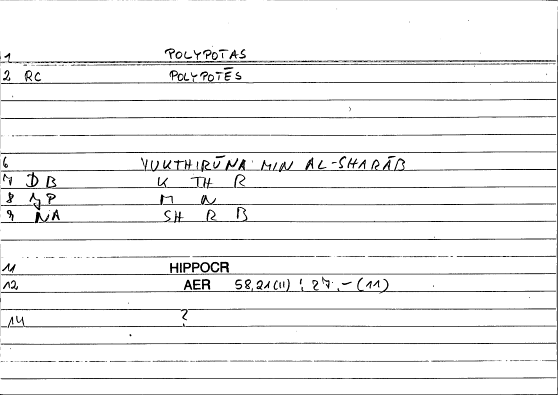 1 POLYPOTAS
2 RC POLYPOTĒS
6 YUKTHIRŪNA MIN AL-SHARĀB
7 DB K TH R
8 M N
9 NA SH R B
11 HIPPOCR
12 AER 58,21(11) ; 27,-(11)
14 ?